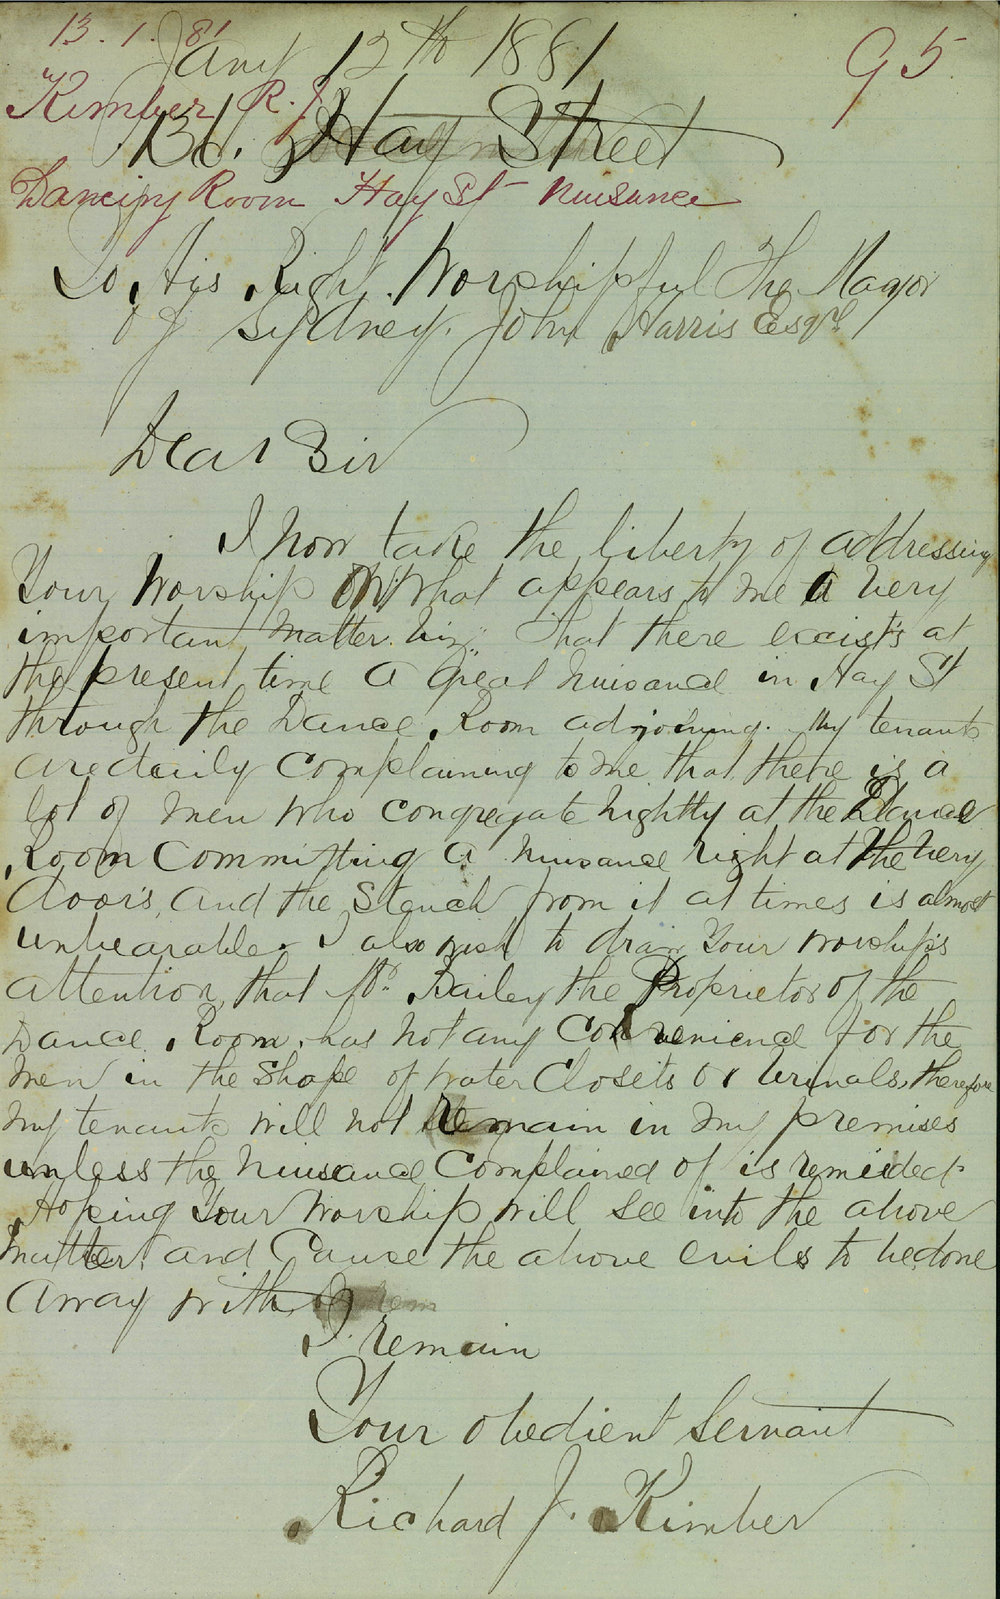 13.1.81
95
Jany 12th 1881
Kimber R. J.
136. Hay Street
Dancing Room Hay St nuisance
To His Right Worshipful The Mayor
of Sydney. John Harris Esqre
Dear Sir
I now take the liberty of addressing
Your Worship on what appears to me a very
important matter. viz:. That there exists at
the present time a great nuisance in Hay St
through the Dance Room adjoining. My tenants
are daily complaining to me that there is a
lot of men who congregate nightly at the Dance
Room committing a nuisance right at the very
doors, and the stench from it at times is almost
unbearable. I also wish to draw Your Worship's
attention, that Mr. Bailey the Proprietor of the
Dance Room, has not any convenience for the
men in the shape of water closets or urinals, therefore
my tenants will not remain in my premises
unless the nuisance complained of is remided.
Hoping Your Worship will see into the above
matter. and cause the above evils to be done
away with
I remain
Your obedient Servant
Richard J. Kimber